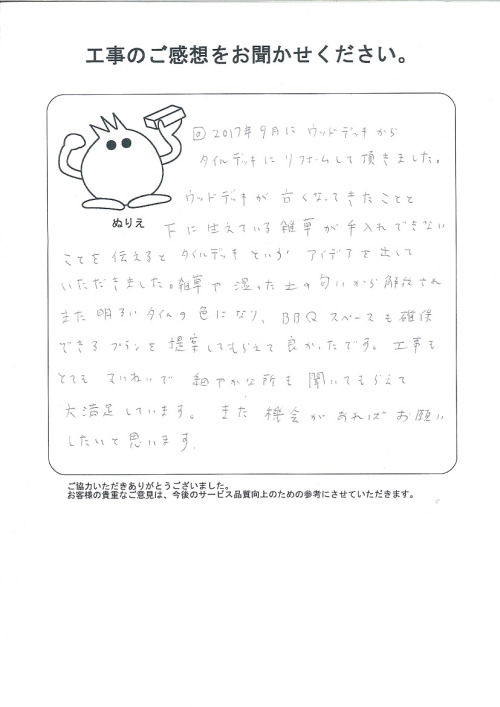 工事のご感想をお聞かせください。
2017年9月に ウッドデッキから
タイルデッキに リフォームして頂きました。
ぬりえ
ウッドデッキが 古くなってきたことと
下に生えている雑草が手入れできない
ことを伝えると タイルデッキというアイデアを出して
いただきました。雑草や 湿った土の匂いから解放され
また 明るいタイルの色になり、BBQスペースも確保
できるプランを提案してもらえて良かったです。工事も
とても ていねいで 細やかな所も 聞いてもらえて
大満足しています。 また 機会があればお願い
したいと思います。
ご協力いただきありがとうございました。
お客様の貴重なご意見は、今後のサービス品質向上のための参考にさせていただきます。